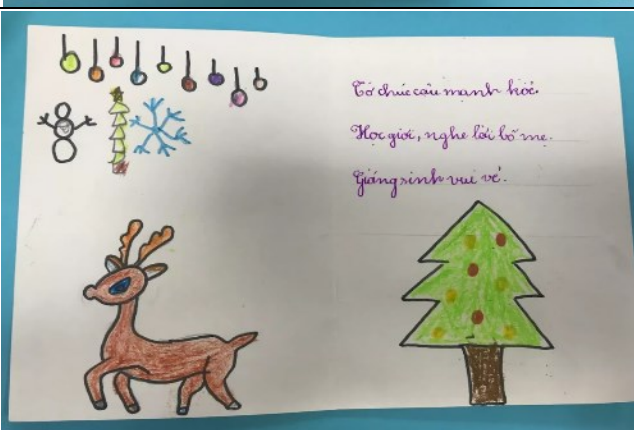 Tớ chúc cậu mạnh khỏe.
Học giỏi, nghe lời bố mẹ.
Giáng sinh vui vẻ.